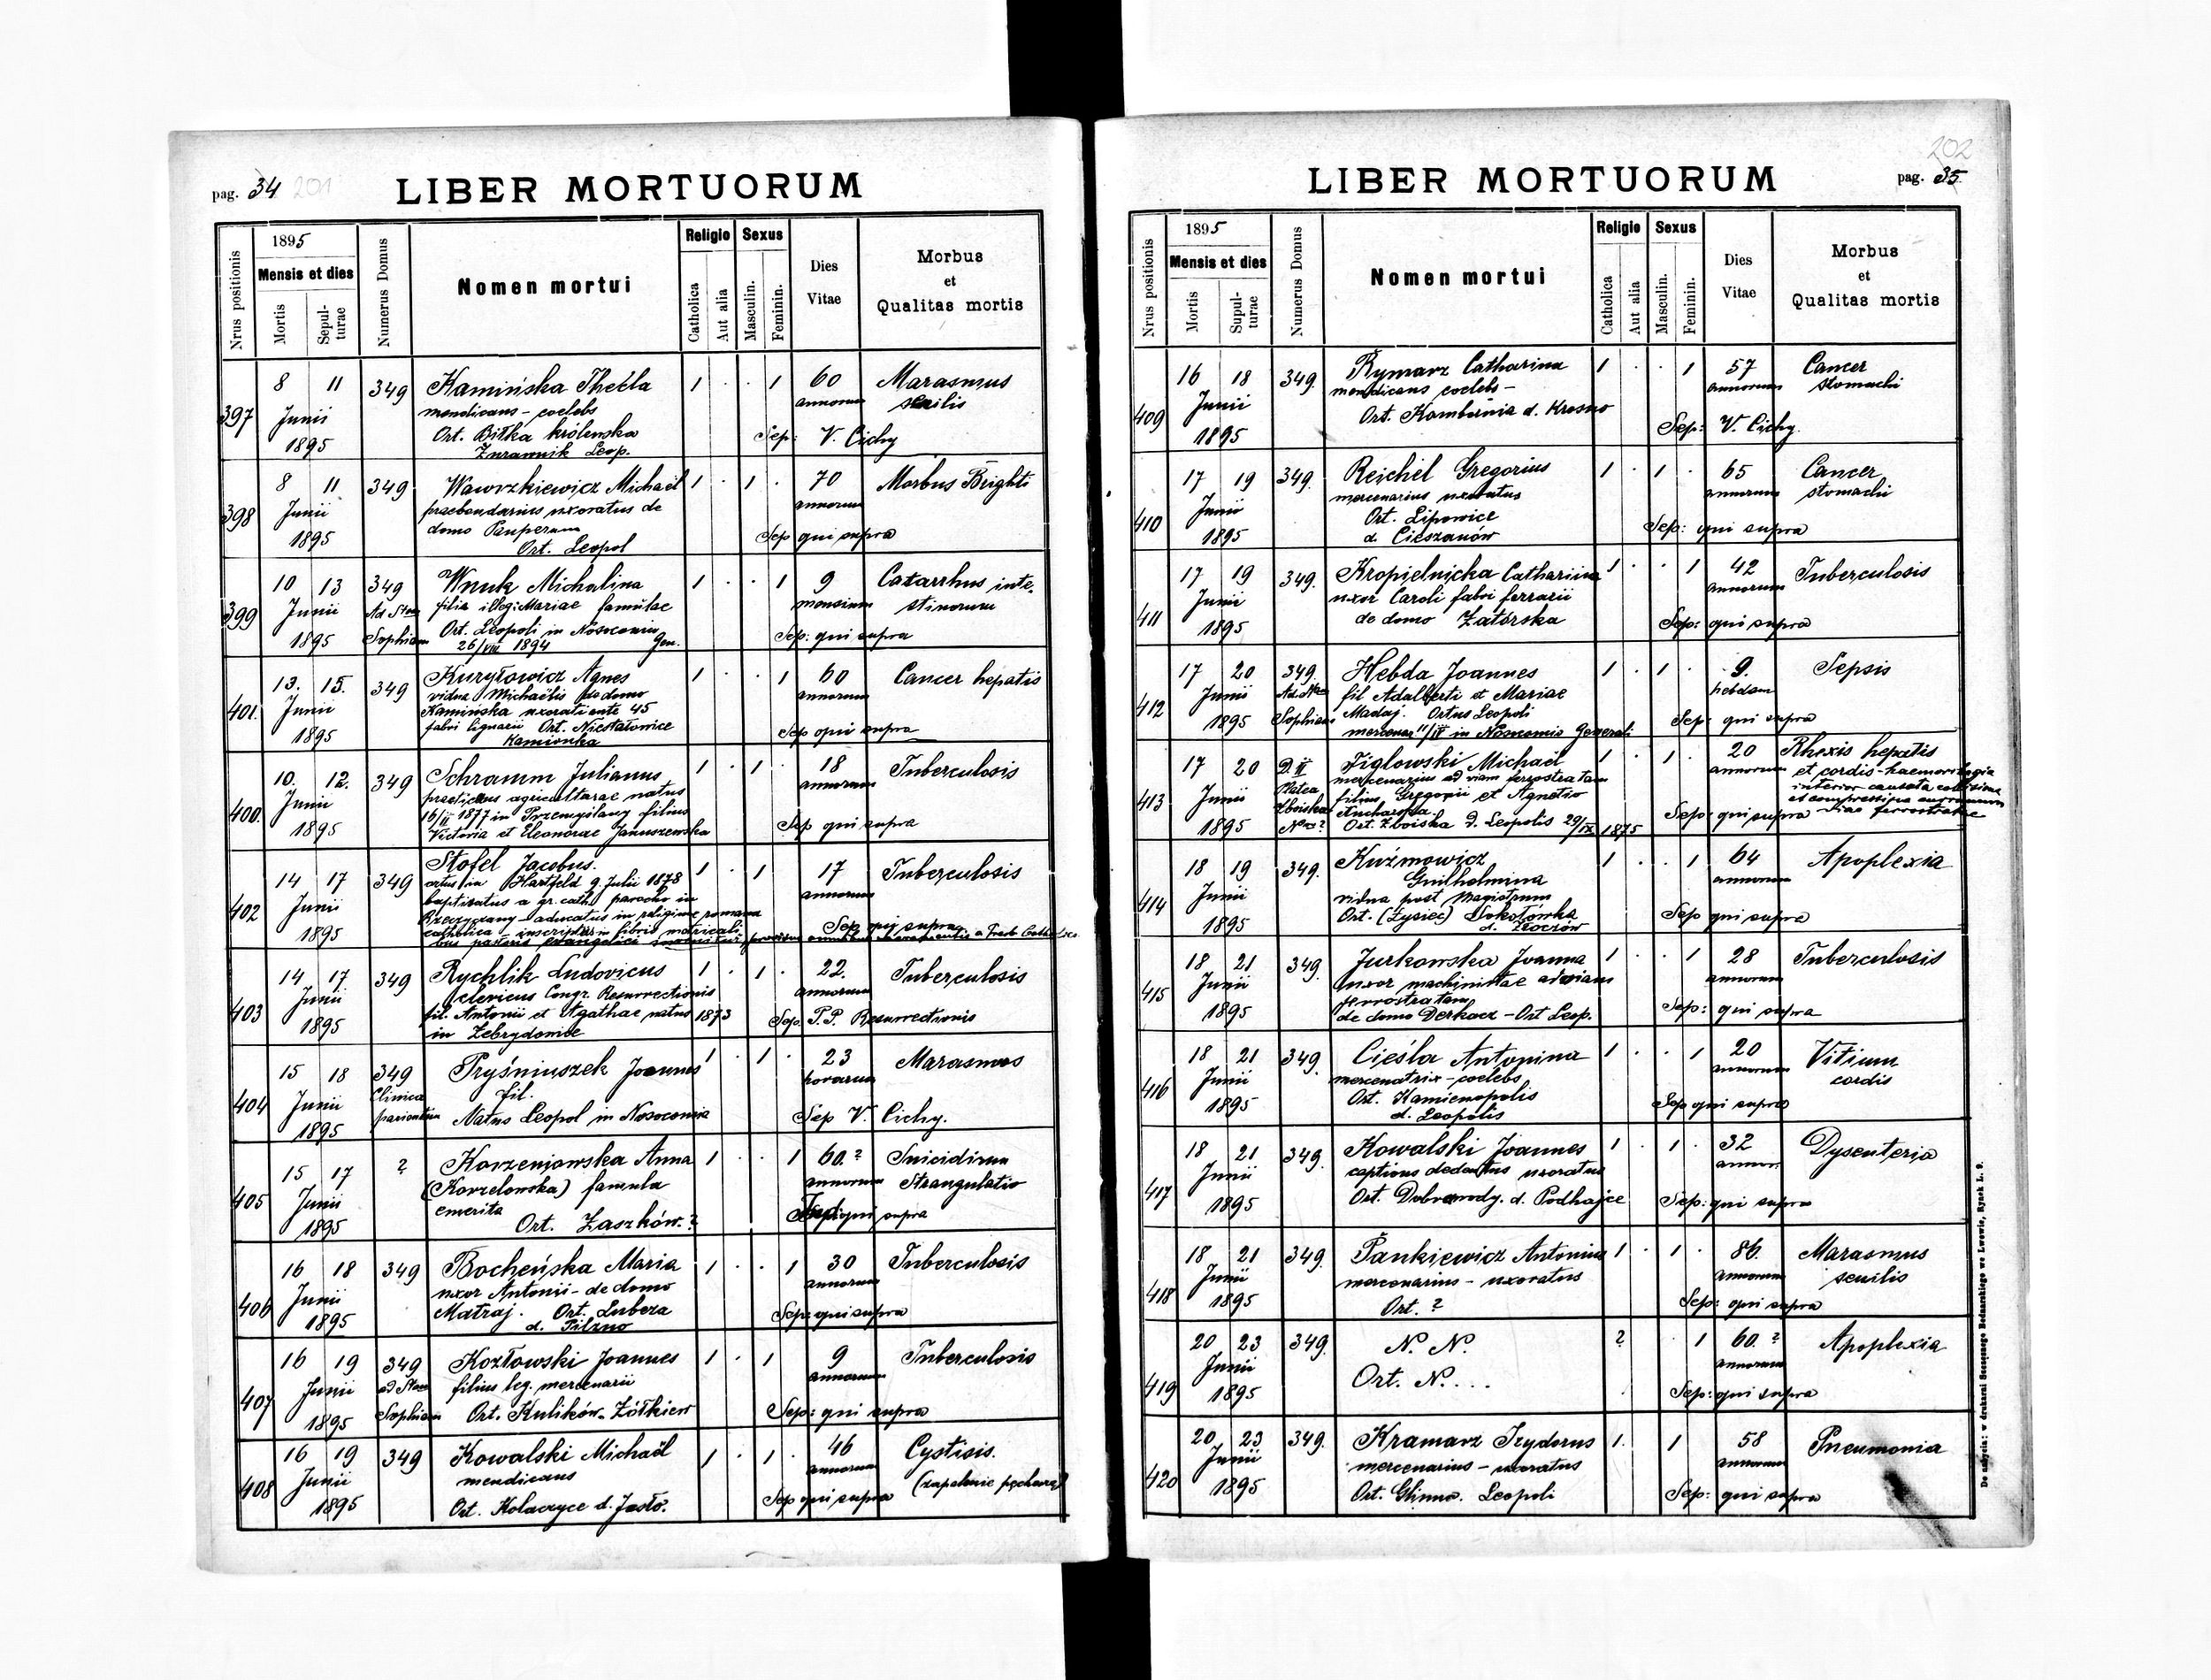 pag. 34 201
LIBER MORTUORUM
Nrus positionis
1895
Mensis et dies
Mortis
Sepulturae
Numerus Domus
Nomen mortui
Religio
Catholica
Aut alia
Sexus
Masculin.
Feminin.
Dies
Vitae
Morbus
et
Qualitas mortis
397
8 11
Junii
1895
349
Kamińska Thecla
mendicans - coelebs
Ort. Biłka królewska
Leop.
1 . . 1
60
annorum
Marasmus
senilis
Sep: V. Cichy
398
8 11
Junii
1895
349
Wawrzkiewicz Michaël
praebendarius uxoratus de
domo Pauperum
Ort. Leopol
1 . 1 .
70
annorum
Morbus Brighti
Sep qui supra
399
10 13
Junii
1895
349
Ad Stam
Sophiam
Wnuk Michalina
filia illeg: Mariae famulae
Ort. Leopoli in Nosocomio
26/VIII 1894 Gen.
1 . . 1
9
mensium
Catarrhus inte-
stinorum
Sep: qui supra
401.
13. 15.
Junii
1895
349
Kuryłowicz Agnes
vidua Michaëlis de domo
Kamińska uxorati ante 45
fabri lignarii Ort. Niestanowice
Kamionka
1 . . 1
60
annorum
Cancer hepatis
Sep qui supra
400.
10. 12.
Junii
1895
349
Schramm Julianus
practicans agriculturae natus
16/II 1877 in Przemyślany filius
Victoria et Eleonorae Januszewska
1 . 1
18
annorum
Tuberculosis
Sep qui supra
402
14 17
Junii
1895
349
Stofel Jacobus.
ortus in Hartfeld 9. Julii 1878
baptisatus a gr. cath. parocho in
Rzeczyczany educatus in religione romana
catholica inscriptus in libris matricali
bus pastoris evangelici
1 . 1
17
annorum
Tuberculosis
Sep qui supra
403
14 17
Junii
1895
349
Rychlik Ludovicus
clericus Congr. Resurrectionis
fil. Antonii et Agathae natus 1873
in Zebrydowice
1 . 1 .
22.
annorum
Tuberculosis
Sep. P.P. Resurrectionis
404
15 18
Junii
1895
349
Clinica
parientium
Pryśniuszek Joannes
fil.
Natus Leopol in Nosocomio
1 . 1 .
23
horarum
Marasmus
Sep V. Cichy.
405
15 17
Junii
1895
?
Korzeniowska Anna
(Korzelowska) famula
emerita
Ort. Zaszków.?
1 . . 1
60.?
annorum
Suicidium
Strangulatio
qui supra
406
16 18
Junii
1895
349
Bocheńska Maria
uxor Antonii - de domo
Matraj. Ort. Lubcza
d. Pilzno
1 . . 1
30
annorum
Tuberculosis
Sep: qui supra
407
16 19
Junii
1895
349
ad Stam
Sophiam
Kozłowski Joannes
filius leg. mercenarii
Ort. Kulików - Żółkiew
1 . 1
9
annorum
Tuberculosis
Sep: qui supra
408
16 19
Junii
1895
349
Kowalski Michaël
mendicans
Ort. Kołaczyce d. Jasło.
1 . 1 .
46
annorum
Cystisis.
(zapalenie pęcherza)
Sep qui supra
202
pag. 35
LIBER MORTUORUM
Nrus positionis
1895
Mensis et dies
Mortis
Supulturae
Numerus Domus
Nomen mortui
Religio
Catholica
Aut alia
Sexus
Masculin.
Feminin.
Dies
Vitae
Morbus
et
Qualitas mortis
409
16 18
Junii
1895
349.
Rymarz Catharina
mendicans coelebs -
Ort. Kombornia d. Krosno
1 . . 1
57
annorum
Cancer
stomachi
Sep: V. Cichy.
410
17 19
Junii
1895
349.
Reichel Gregorius
mercenarius uxoratus
Ort. Lipowice
d. Cieszanów
1 . 1 .
65
annorum
Cancer
stomachi
Sep: qui supra
411
17 19
Junii
1895
349.
Kropielnicka Catharina
uxor Caroli fabri ferrarii
de domo Zatorska
1 . . 1
42
annorum
Tuberculosis
Sep: qui supra
412
17 20
Junii
1895
349.
Ad Stam
Sophiam
Hebda Joannes
fil Adalberti et Mariae
Madaj. Ortus Leopoli
mercenar. 11/IV in Nosocomio Generali
1 . 1 .
9.
hebdom
Sepsis
Sep: qui supra
413
17 20
Junii
1895
D. II
Platea
Zboiska
Nro ?
Figlowski Michaël
mercenarius ad viam ferrostratam
filius Gregorii et Agnetis
Ort. Zboiska d. Leopolis 29/IX 1875
1 . 1 .
20
annorum
Rhexis hepatis
et cordis - haemorrhagia
interior causata collisione
et compressione curruum
viae ferrostratae
Sep: qui supra
414
18 19
Junii
1895
349.
Kuźmowicz
Guilhelmina
vidua post Magistrum
Ort. (Łysiec) Sokołówka
d. Złoczów
1 . . 1
64
annorum
Apoplexia
Sep qui supra
415
18 21
Junii
1895
349.
Jurkowska Joanna
uxor machinistae ad viam
ferrostratam
de domo Derkacz - Ort Leop.
1 . . 1
28
annorum
Tuberculosis
Sep: qui supra
416
18 21
Junii
1895
349.
Cieśla Antonina
mercenatrix - coelebs
Ort. Kamienopolis
d. Leopolis
1 . . 1
20
annorum
Vitium
cordis
Sep qui supra
417
18 21
Junii
1895
349.
Kowalski Joannes
captious uxoratus
Ort. Dobrowody. d. Podhajce
1 . 1 .
32
annor.
Dysenteria
Sep: qui supra
418
18 21
Junii
1895
349.
Pankiewicz Antonius
mercenarius - uxoratus
Ort. ?
1 . 1 .
86.
annorum
Marasmus
senilis
Sep: qui supra
419
20 23
Junii
1895
349.
N. N.
Ort. N. ...
? . 1
60.?
annorum
Apoplexia
Sep: qui supra
420
20 23
Junii
1895
349.
Kramarz Izydorus
mercenarius - uxoratus
Ort. Glinna. Leopoli
1. 1
58
annorum
Pneumonia
Sep: qui supra
Do nabycia: w drukarni Szczęsnego Bednarskiego we Lwowie, Rynek L. 9.